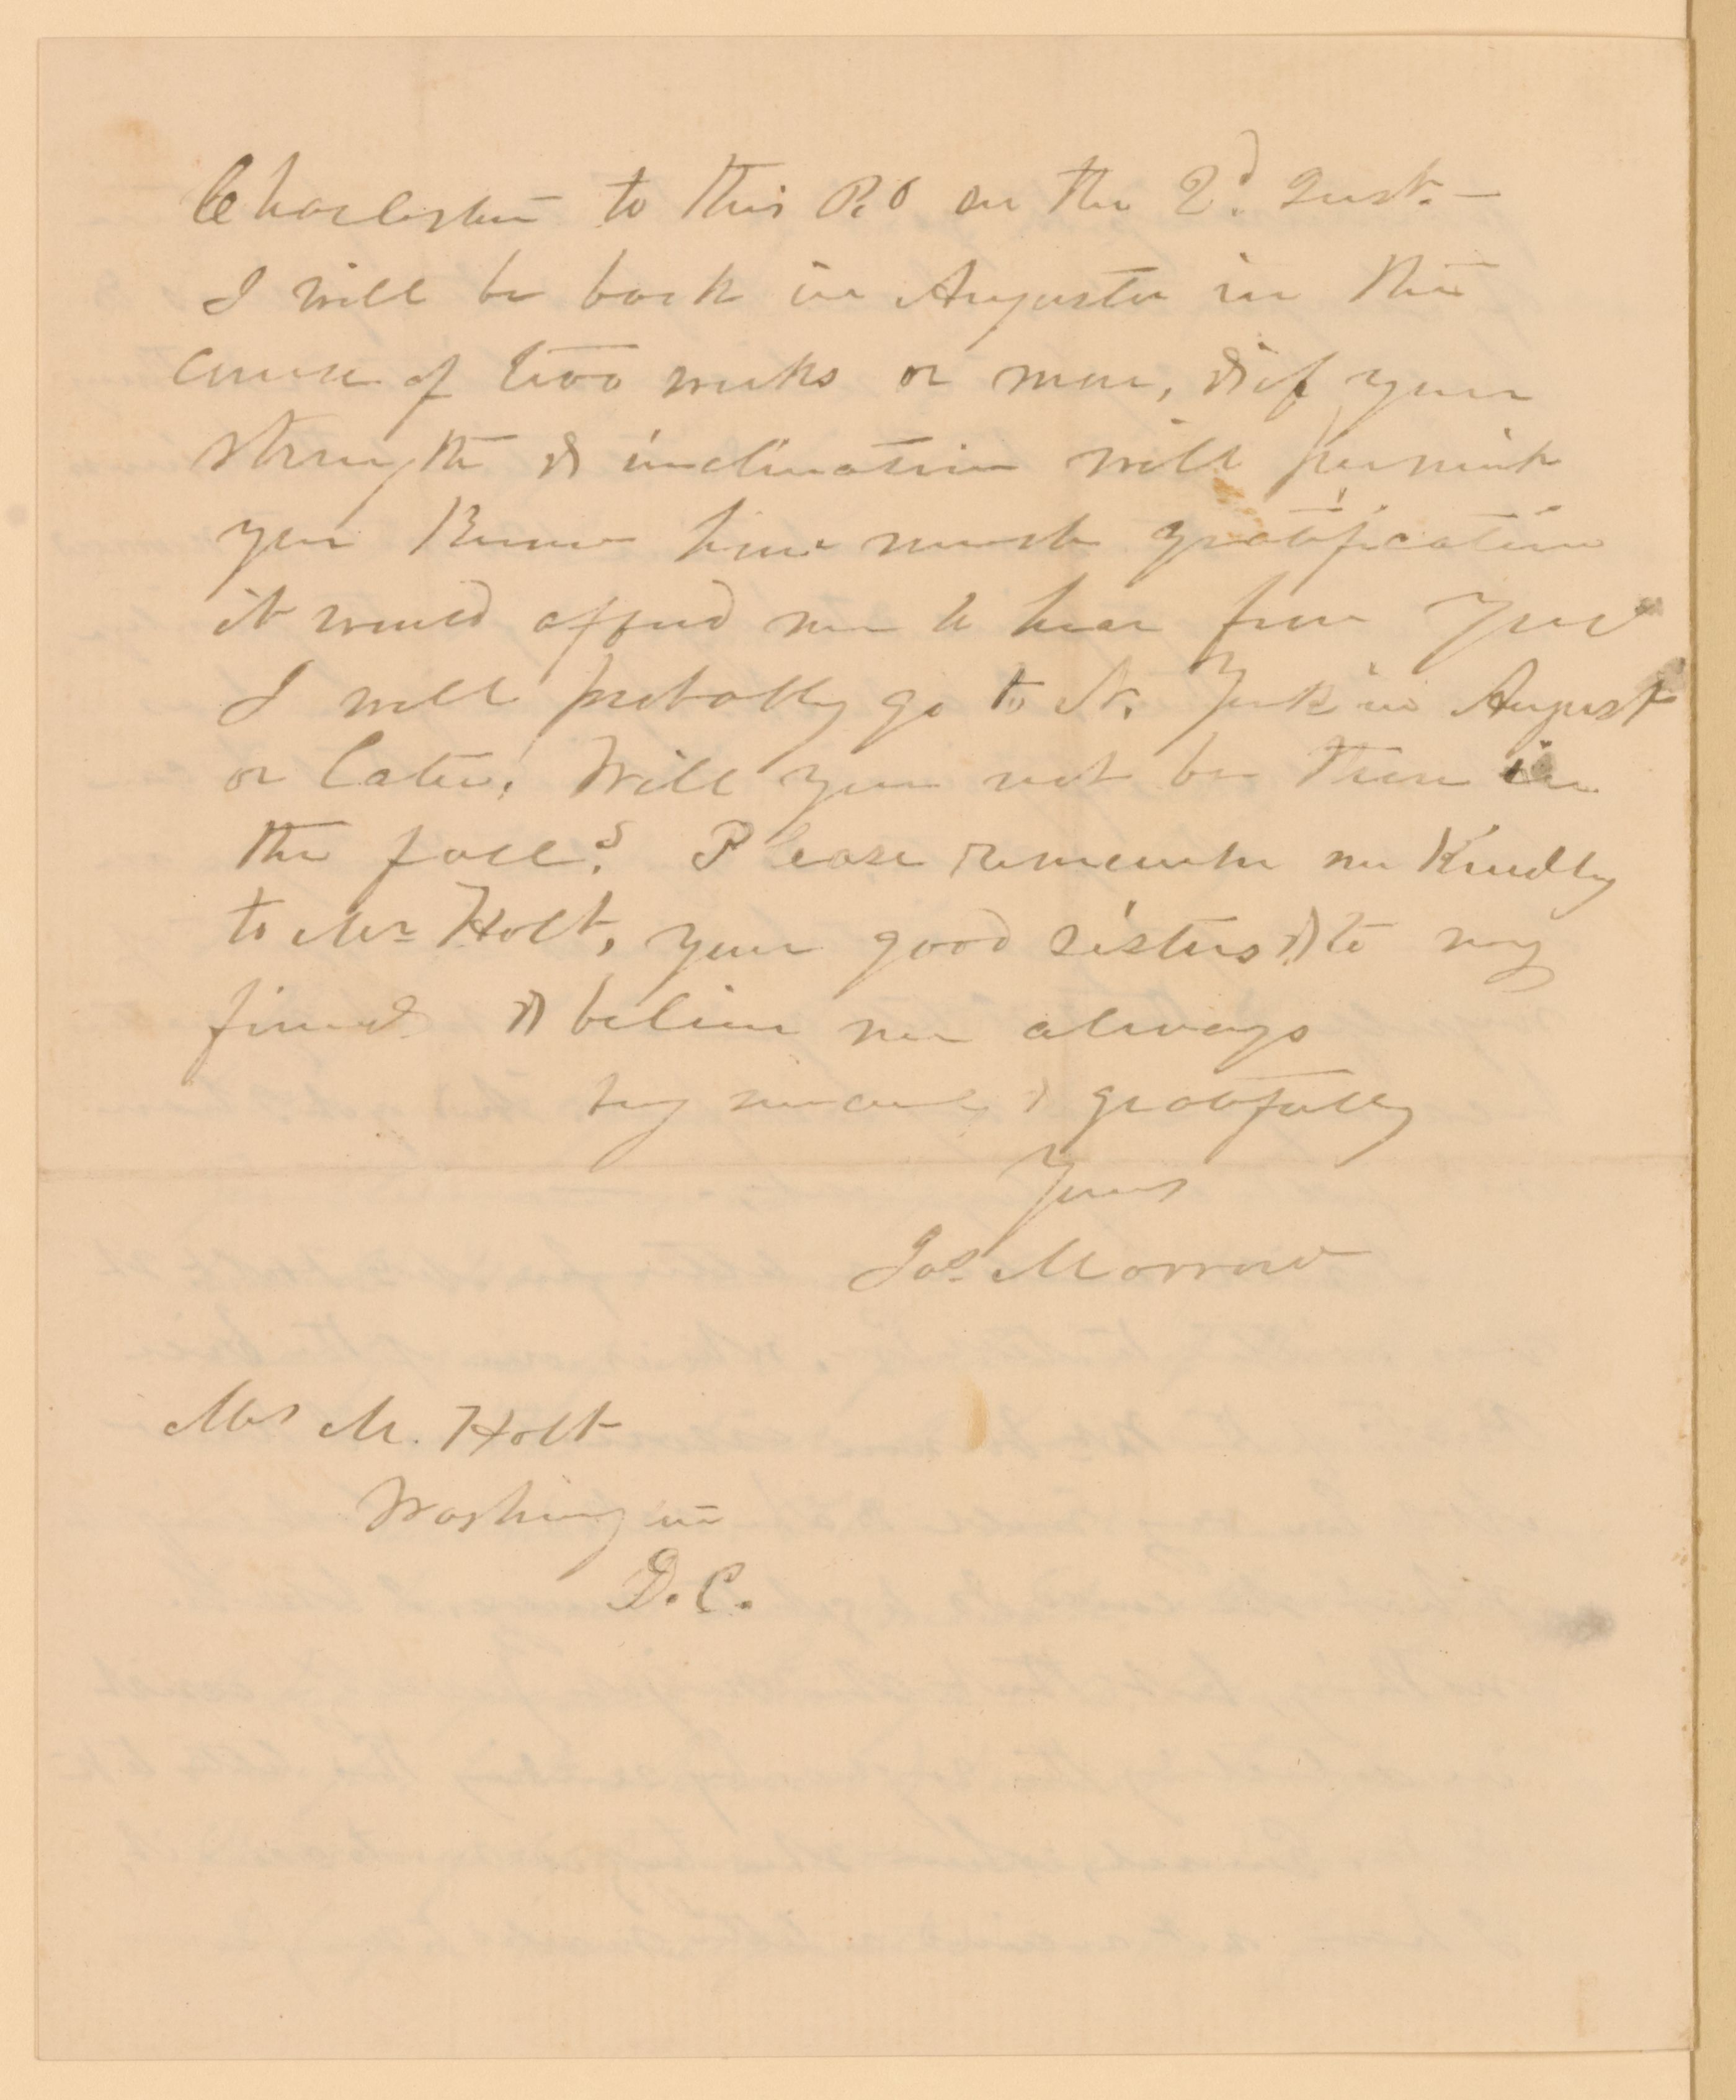 Charleston to this P.O on the 2d. Inst. —
I will be back in Augusta in the
course of two weeks or more, & if your
strength & inclination will permit
you know how much gratification
it would afford me to hear from you
I will probably go to N. York in August
or later. Will you not be there in
the fall? Please remember me kindly
to Mr Holt, your good sisters & to my
friend & believe me always
very & gratefully
Yours
Jas Morrow
Mrs M. Holt
Washington
D.C.